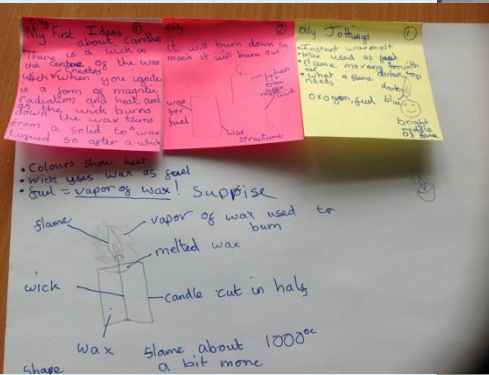 My First Ideas
about candles
There is a wick in
the centre of the wax
when you ignite
is a form of
radiation and heat and
as the wick burns
down the wax turns
from a solid to a wax
liquid so after a while
Olly
2
it will burn down so
much it will burn out
when
wax
for
fuel
wax
structure
Olly Jottings
1
• Instant wax melt
• Wax used as fuel
• flame moving
• what a flame
needs
dark
oxogon, fuel
bright
middle
of flame
• Colours show heat
• Wick uses wax as fuel
• fuel = vapor of wax! Suppise
flame
vapor of wax used to
burn
melted wax
wick
candle cut in half
wax
flame about 1000°c
a bit more
shape